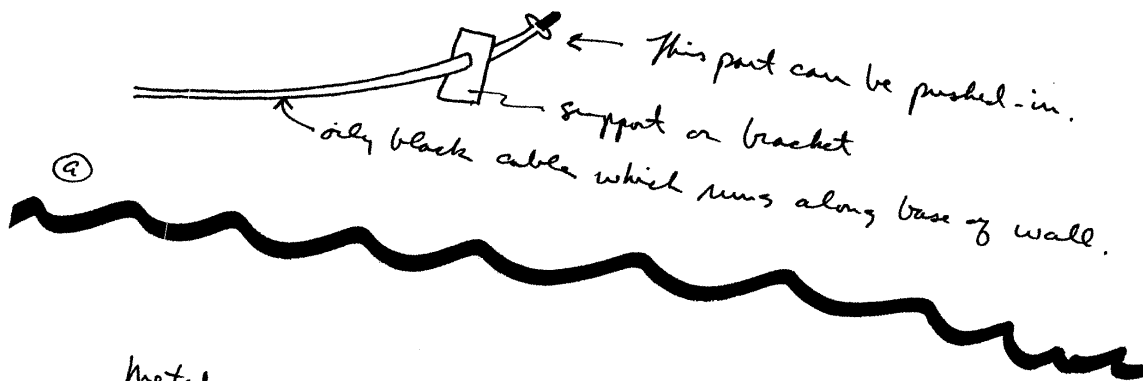 This part can be pushed-in.
support or bracket
oily black cable which runs along base of wall.
a
Metal